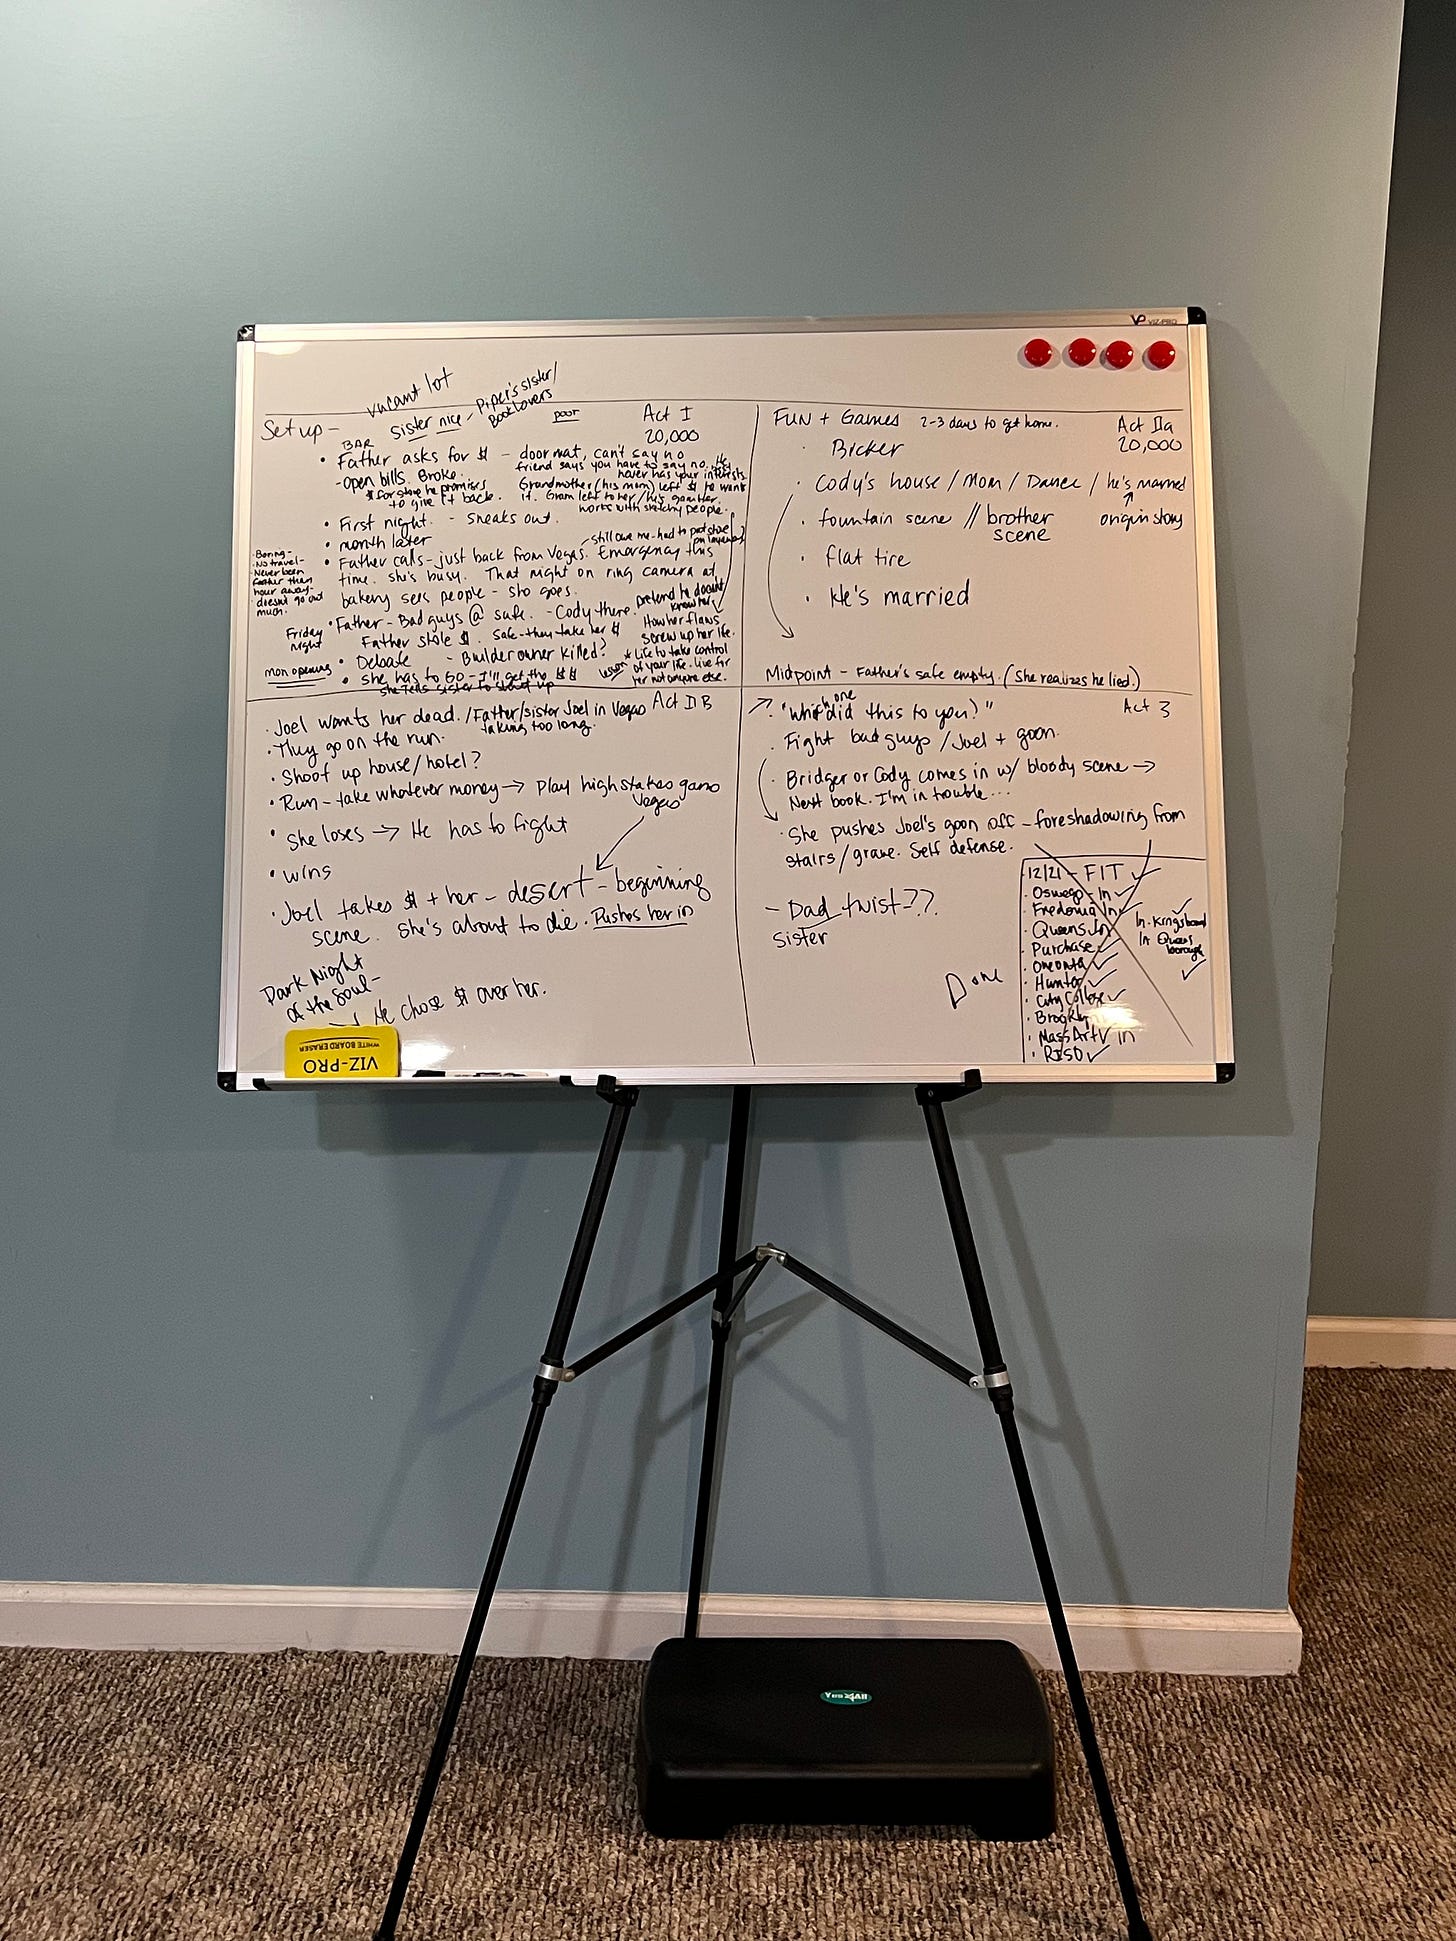 VP VIZ-PRO
vacant lot
Set up -
Sister nice - Piper's sister/
Book Lovers
poor
Act I
20,000
BAR
• Father asks for $ - doormat, can't say no
friend says you have to say no. He
never has your interests
- open bills. Broke.
$ for store he promises
to give it back.
Grandmother (his mom) left $ he wants
it. Gram left to her/he's gambler.
works with sketchy people.
• First night. - sneaks out.
• month later
- still owe me - had to put store
on layaway?
• Father calls - just back from Vegas. Emergency this
time. she's busy. That night on ring camera at
bakery sees people - sho goes.
• Boring -
• No travel -
Never been
farther than
hour away -
doesn't go out
much.
pretend he doesn't
know her.
Friday
night
• Father - Bad guys @ safe. - Cody there.
Father stole $. Safe - they take her $
How her flaws
screw up her life.
* Life to take control
of your life. Live for
her not anyone else.
lesson
• Debate - Builder owner killed?
mon opening
• She has to GO - I'll get the $$
she tells sister to
FUN + GAMES 2-3 days to get home.
Act IIa
20,000
• Bicker
• Cody's house / Mom / Dance / he's married
origin story
• fountain scene // brother
scene
• flat tire
• He's married
Midpoint - Father's safe empty. (She realizes he lied.)
Act II B
• Joel wants her dead. /Father/sister Joel in Vegas
taking too long.
• They go on the run.
• Shoot up house/hotel?
• Run - take whatever money → play high stakes game
Vegas
• She loses → He has to fight
• wins
• Joel takes $ + her - desert - beginning
scene. She's about to die. Pushes her in
Dark Night
of the Soul -
→ He chose $ over her.
Act 3
• "Which one did this to you?"
• Fight bad guys / Joel + goon.
• Bridger or Cody comes in w/ bloody scene →
Next book. I'm in trouble...
• She pushes Joel's goon off - foreshadowing from
stairs / grave. Self defense.
- Dad twist - ??
sister
Done
12/21 - FIT
• Oswego In
• Fredonia In
• Queens In
• Purchase
• Oneonta
• Hunter
• City College
• Brooklyn
• MassArt In
• RISD
In - Kingsboro
In Queens
borough
VIZ-PRO
WHITE BOARD ERASER
Yes4All